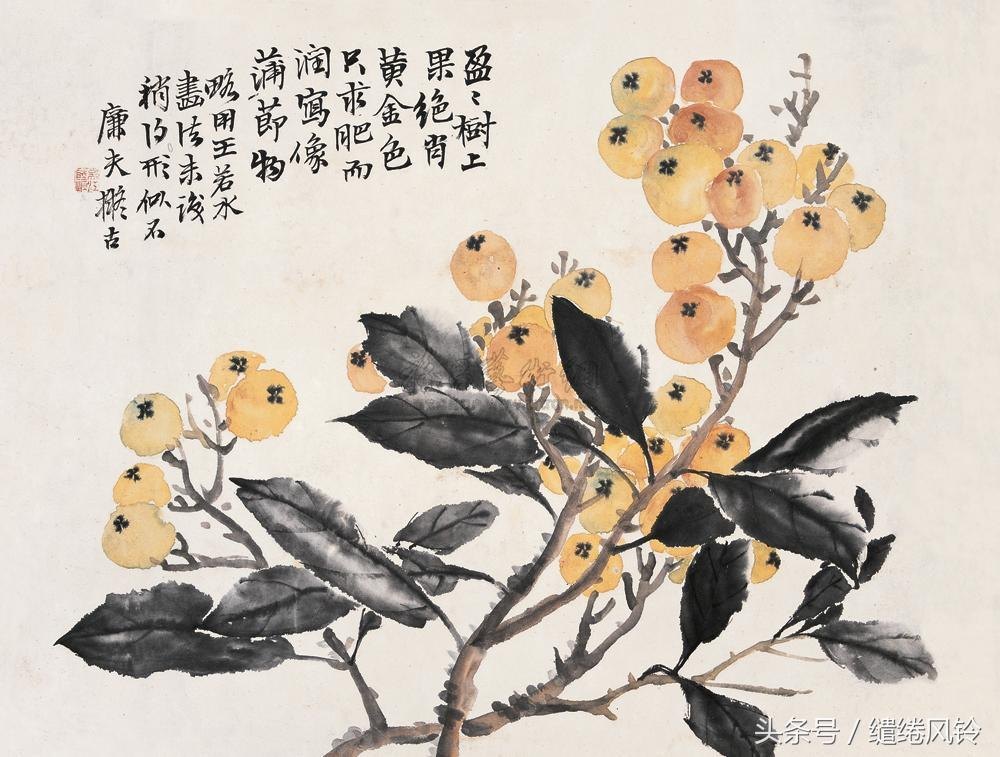 盈〻樹上
果絶肖
黄金色
只求肥而
潤寫像
蒲節物
略用王若水
畫法未識
稍得形似不
廉夫擬古
头条号 / 缱绻风铃